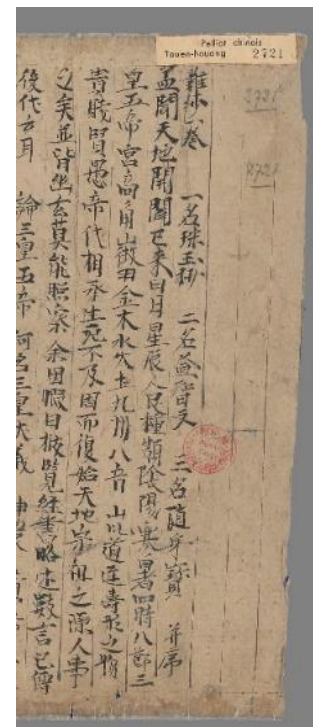 Pelliot chinois
Touen-houang 2721
2721
2721
雜抄一卷 一名珠玉抄 二名益智文 三名隨身寶 并序
盖聞天地開闢已来日月星辰人民種類陰陽寒暑四時八節三
皇五帝宮商角徵羽金木水火土九州八音山川道逕壽形之物
貴賤賢愚帝代相承生死不及因而復始天地宗祖之源人事
之矣並皆幽玄莫能照察余因暇日披覧經書略述數言已傳
後代云耳 論三皇五帝 何名三皇